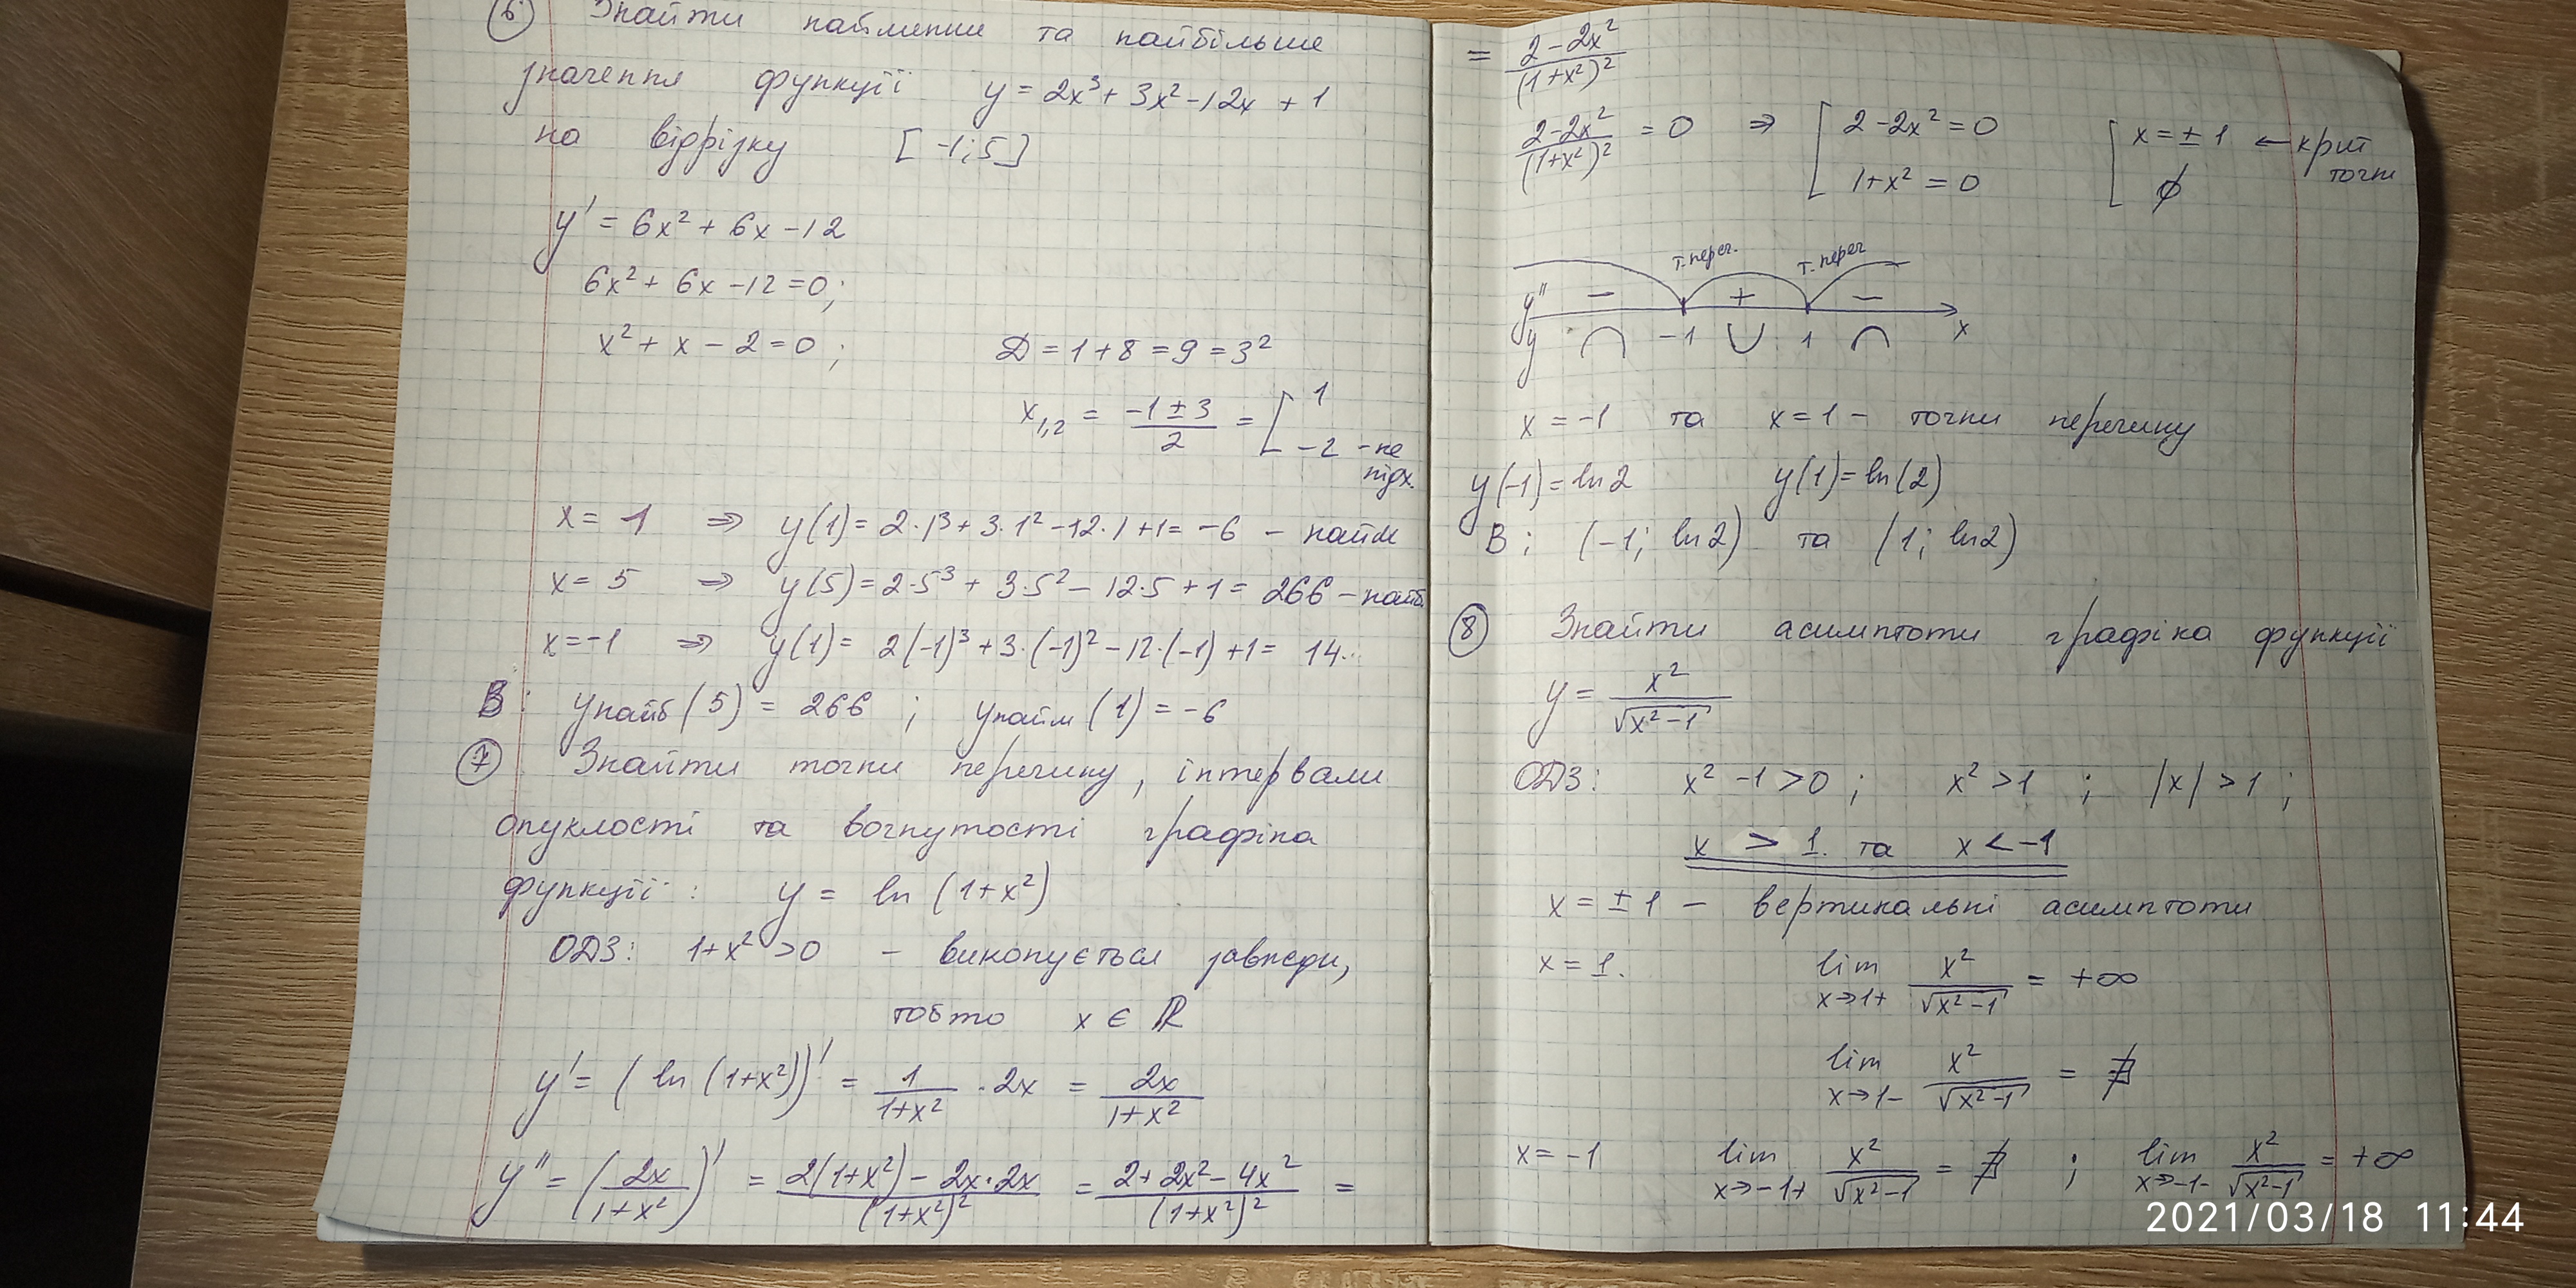 6 Знайти найменше та найбільше
значення функції y = 2x³ + 3x² - 12x + 1
на відрізку [-1; 5]
y' = 6x² + 6x - 12
6x² + 6x - 12 = 0;
x² + x - 2 = 0; D = 1 + 8 = 9 = 3²
x₁,₂ = (-1 ± 3)/2 = [ 1
-2 - не
підх.
x = 1 ⇒ y(1) = 2·1³ + 3·1² - 12·1 + 1 = -6 - найм
x = 5 ⇒ y(5) = 2·5³ + 3·5² - 12·5 + 1 = 266 - найб.
x = -1 ⇒ y(1) = 2(-1)³ + 3·(-1)² - 12·(-1) + 1 = 14.
В: yнайб(5) = 266; yнайм(1) = -6
7 Знайти точки перегину, інтервали
опуклості та вогнутості графіка
функції: y = ln(1+x²)
ОДЗ: 1+x² > 0 - виконується завжди,
тобто x ∈ ℝ
y' = (ln(1+x²))' = 1/(1+x²) · 2x = 2x/(1+x²)
y'' = (2x/(1+x²))' = (2(1+x²) - 2x·2x)/(1+x²)² = (2+2x²-4x²)/(1+x²)² =
= (2-2x²)/(1+x²)²
(2-2x²)/(1+x²)² = 0 ⇒ [ 2-2x² = 0 [ x = ±1 ← крит
1+x² = 0 ∅ точки
т.перег. т.перег
y'' - + -
y ∩ -1 ∪ 1 ∩ x
x = -1 та x = 1 - точки перегину
y(-1) = ln2 y(1) = ln(2)
В: (-1; ln2) та (1; ln2)
8 Знайти асимптоти графіка функції
y = x²/√(x²-1)
ОДЗ: x² - 1 > 0; x² > 1; |x| > 1;
x > 1. та x < -1
x = ±1 - вертикальні асимптоти
x = 1. lim x→1+ x²/√(x²-1) = +∞
lim x→1- x²/√(x²-1) = ∄
x = -1 lim x→-1+ x²/√(x²-1) = ∄; lim x→-1- x²/√(x²-1) = +∞
2021/03/18 11:44